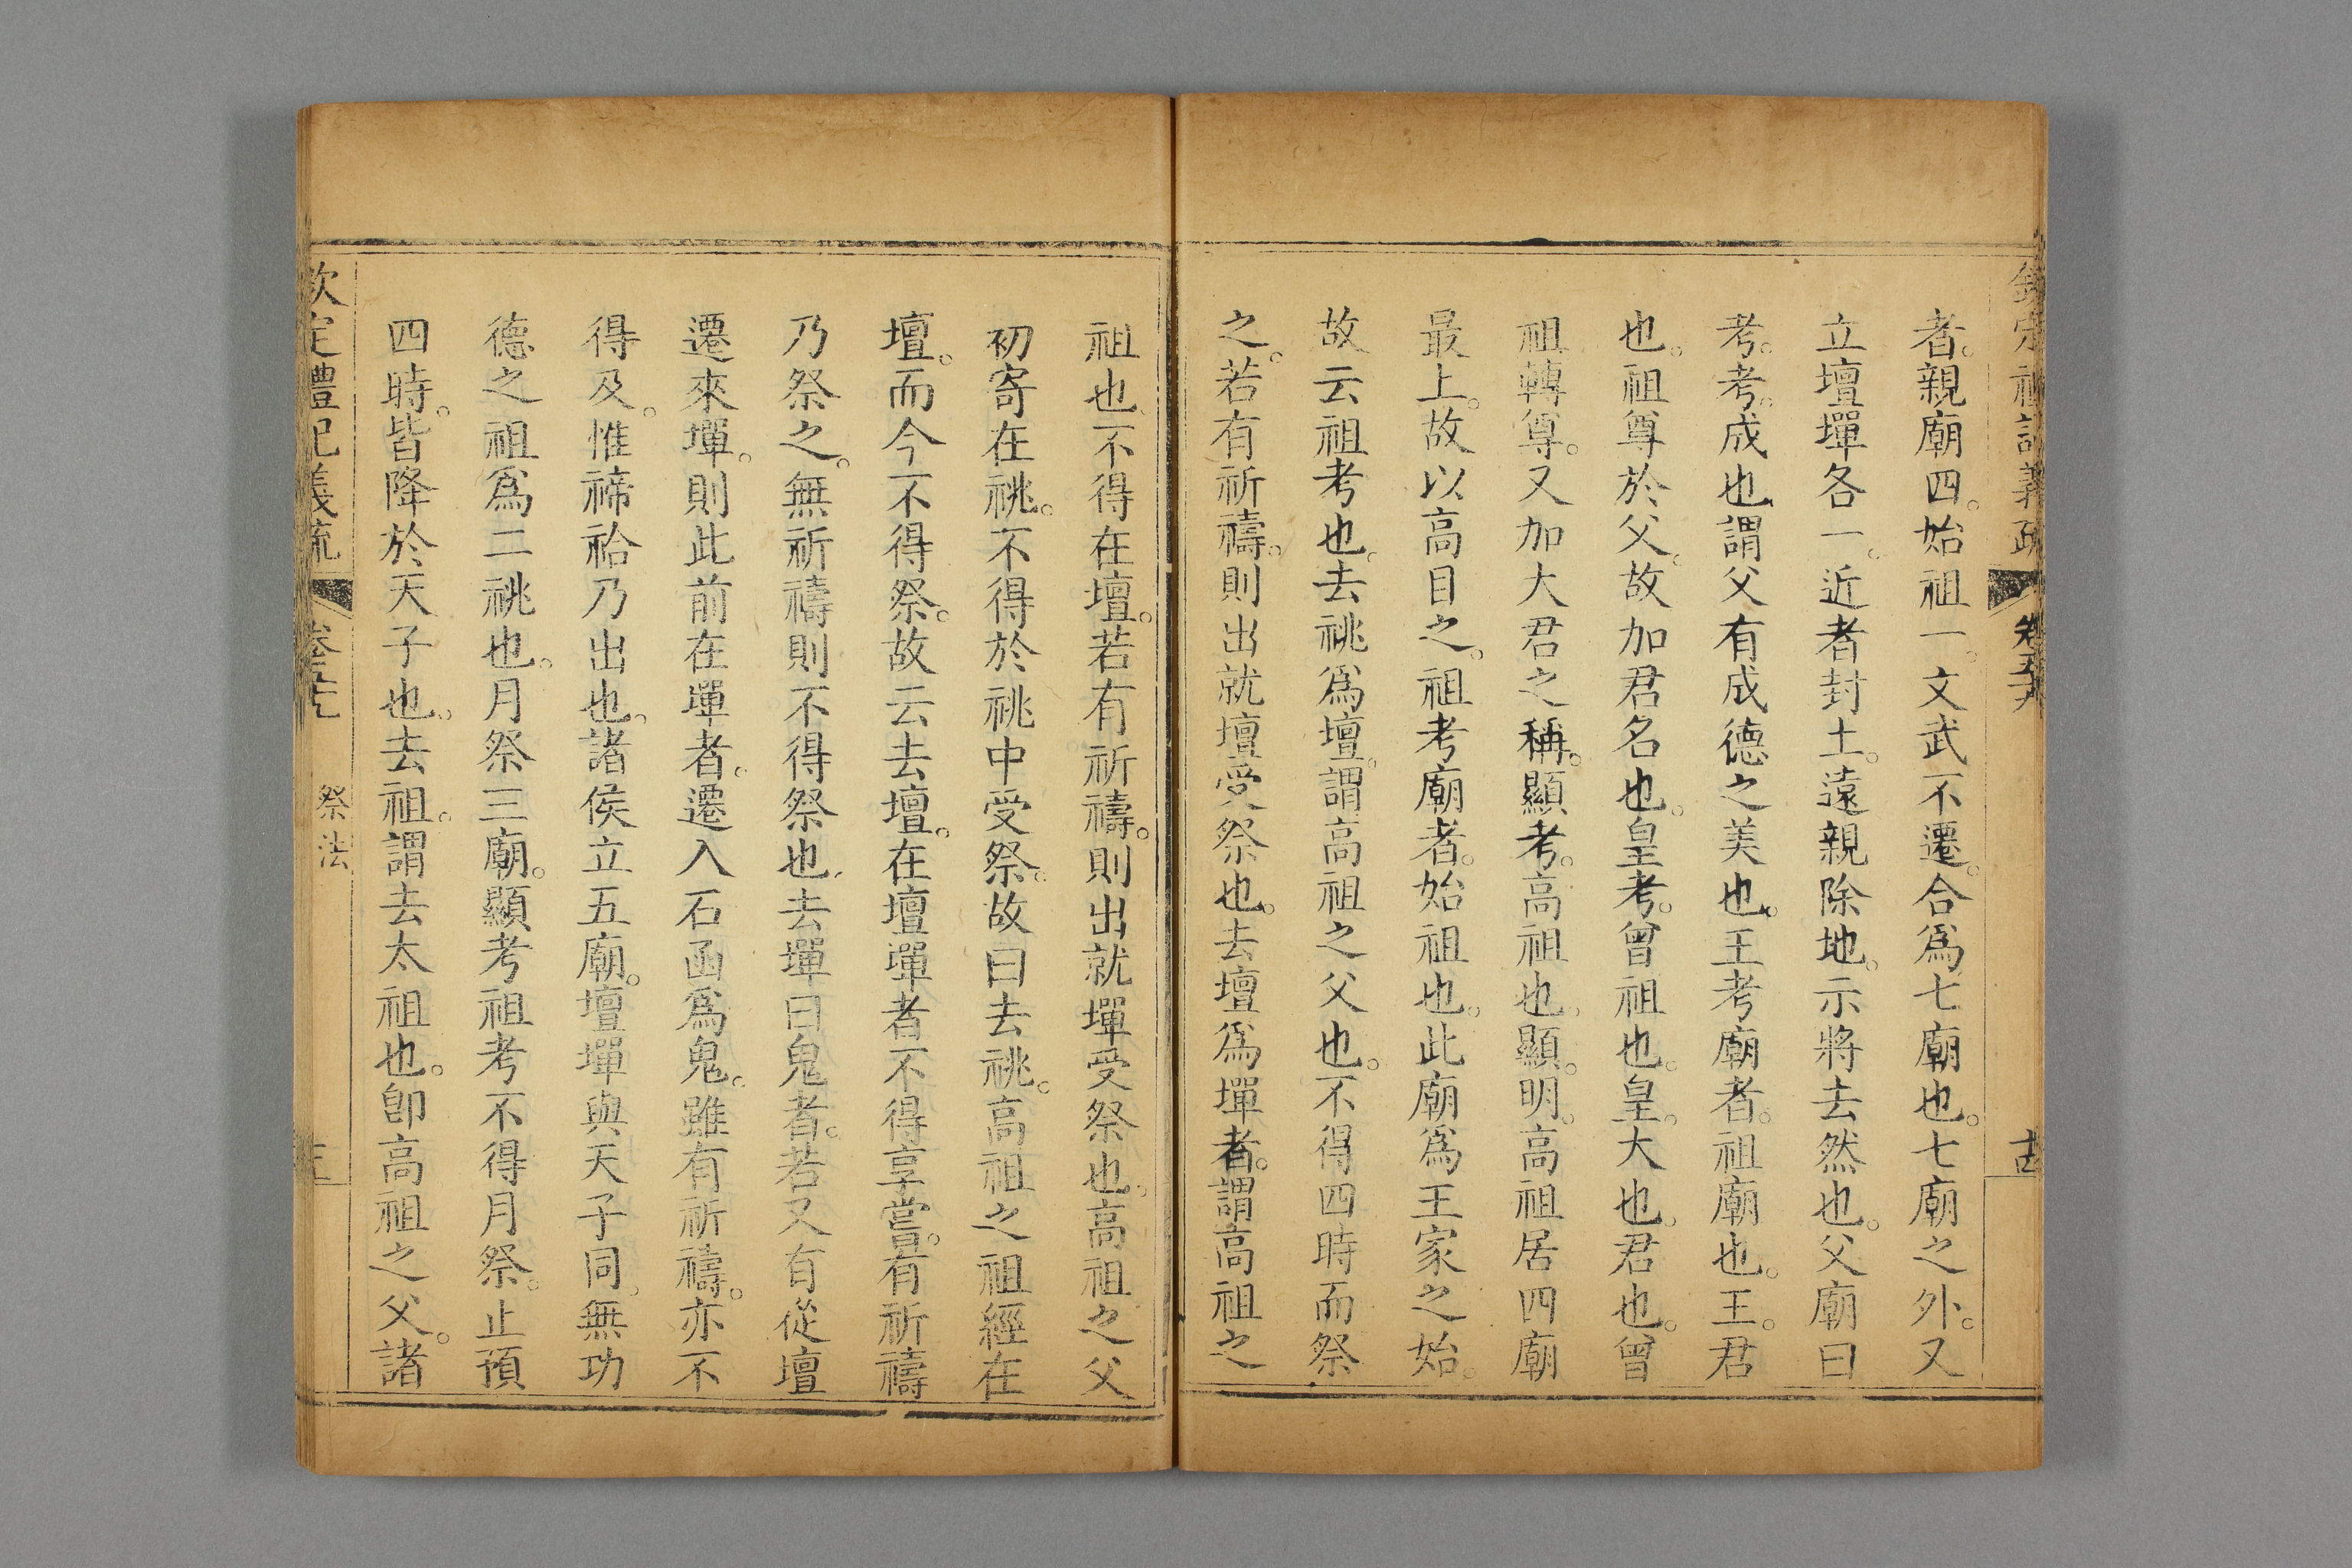 者。親廟四。始祖一。文武不遷。合爲七廟也。七廟之外。又
立壇墠各一。近者封土。遠親除地。示將去然也。父廟曰
考。考。成也。謂父有成德之美也。王考廟者。祖廟也。王。君
也。祖尊於父。故加君名也。皇考。曾祖也。皇。大也。君也。曾
祖轉尊。又加大君之稱。顯考。高祖也。顯。明。高祖居四廟
最上。故以高目之。祖考廟者。始祖也。此廟爲王家之始。
故云祖考也。去祧爲壇。謂高祖之父也。不得四時而祭
之。若有祈禱。則出就壇受祭也。去壇爲墠者。謂高祖之
祖也。不得在壇。若有祈禱。則出就墠受祭也。高祖之父
初寄在祧。不得於祧中受祭。故曰去祧。高祖之祖經在
壇。而今不得祭。故云去壇。在壇墠者不得享嘗。有祈禱
乃祭之。無祈禱則不得祭也。去墠曰鬼者。若又有從壇
遷來墠。則此前在墠者。遷入石函爲鬼。雖有祈禱。亦不
得及。惟禘祫乃出也。諸侯立五廟。壇墠與天子同。無功
德之祖爲二祧也。月祭三廟。顯考祖考不得月祭。止預
四時。皆降於天子也。去祖。謂去太祖也。卽高祖之父。諸
欽定禮記義疏
祭法